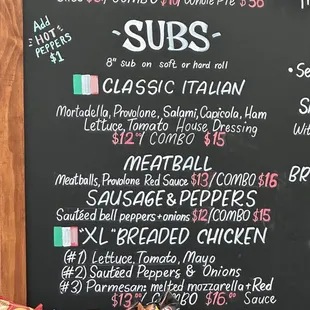 COMBO $16/ Whole Pie $38
Add
"HOT"
PEPPERS
$1
-SUBS-
8" sub on soft or hard roll
CLASSIC ITALIAN
Mortadella, Provolone, Salami, Capicola, Ham
Lettuce, Tomato House Dressing
$12.00/ COMBO $15
MEATBALL
Meatballs, Provolone Red Sauce $13/COMBO $16
SAUSAGE & PEPPERS
Sautéed bell peppers + onions $12/COMBO $15
"XL" BREADED CHICKEN
(#1) Lettuce, Tomato, Mayo
(#2) Sautéed Peppers & Onions
(#3) Parmesan: melted mozzarella + Red
$13.00/ COMBO $16.00 Sauce